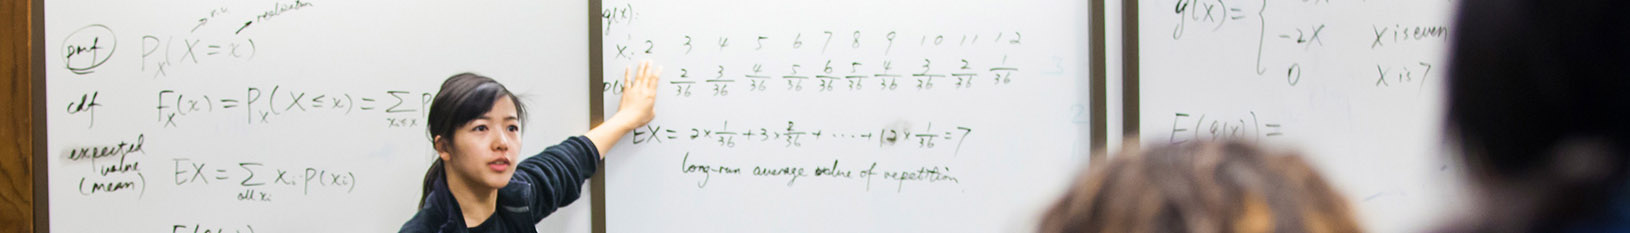 r.v. realization
pmf P_X(X = x)
cdf F_X(x) = P_X(X ≤ x) = ∑_{x_i ≤ x} P
expected value (mean) EX = ∑_{all x_i} x_i · p(x_i)
g(x):
x: 2 3 4 5 6 7 8 9 10 11 12
p(x 2/36 3/36 4/36 5/36 6/36 5/36 4/36 3/36 2/36 1/36
EX = 2 × 1/36 + 3 × 2/36 + ... + 12 × 1/36 = 7
long-run average value of repetition
g(x) = {
-2X X is even
0 X is 7
E(g(x)) =